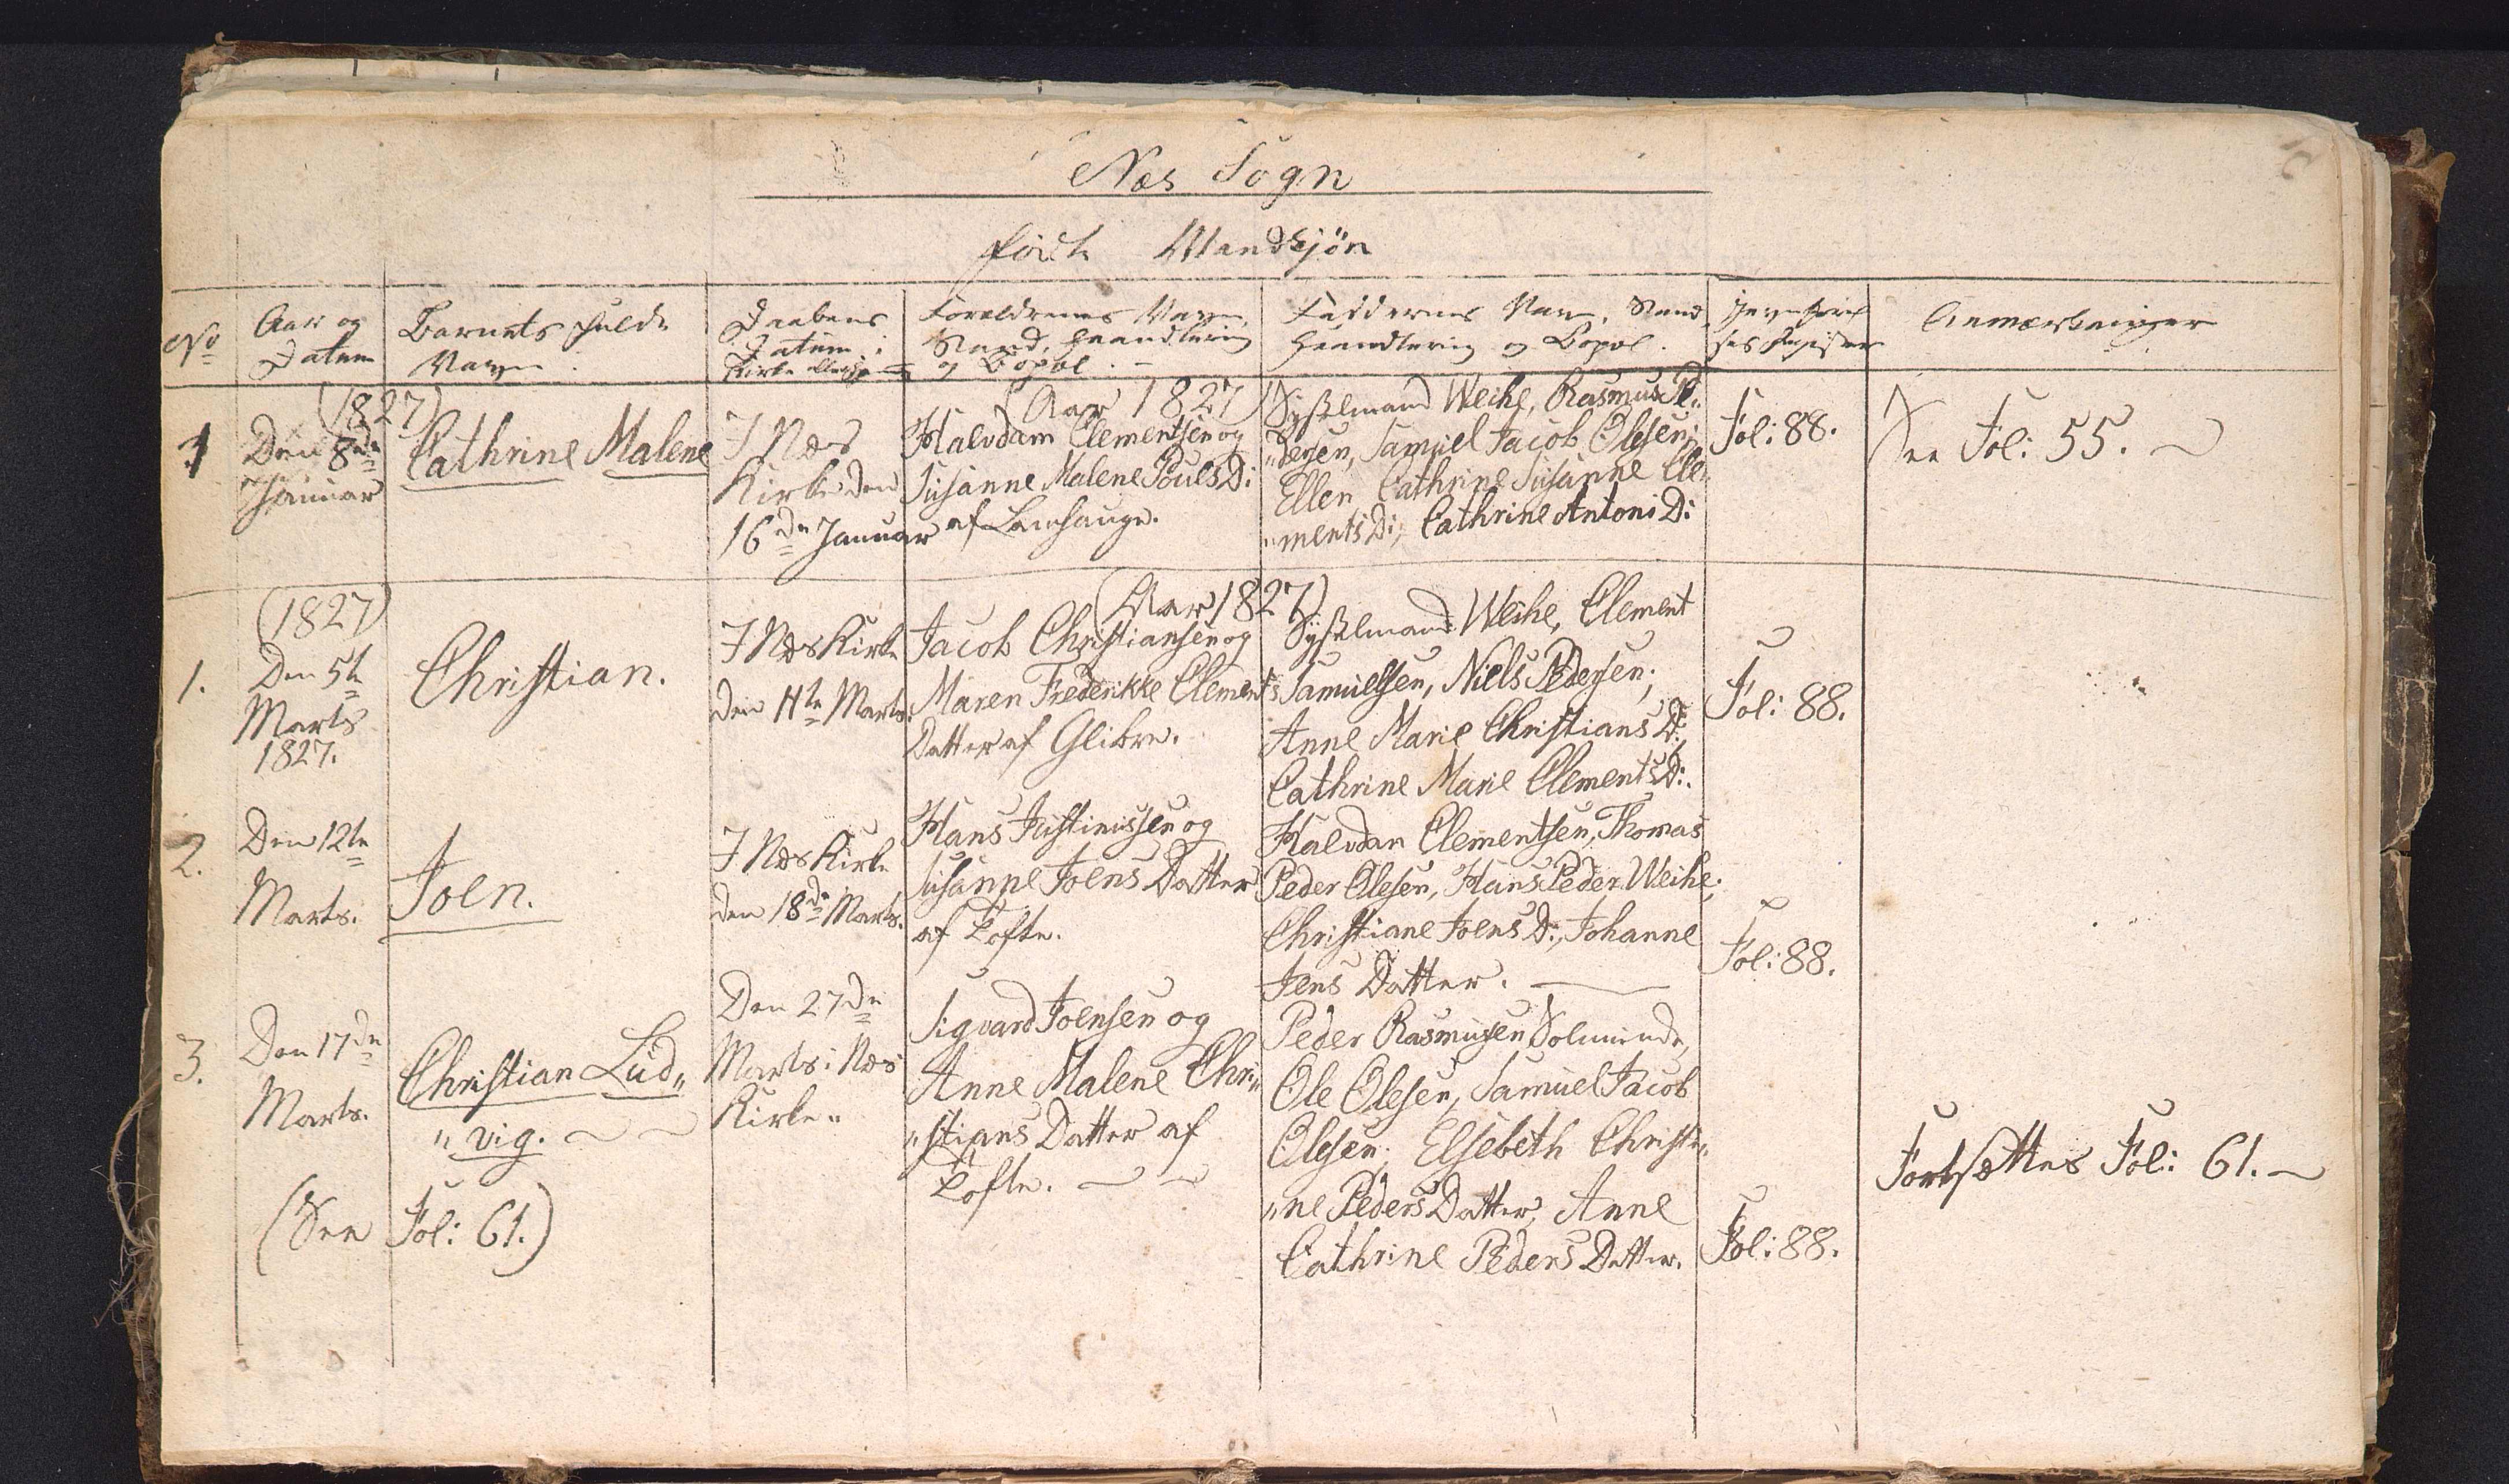 Næs Sogn
Födte Mandkjön
No
Aar og
Datum
Barnets fulde
Navn
Daabens
Datum i
Kirke eller hjemme
Forældrenes Navn,
Stand, Haandtering
og Bopæl.
Faddernes Navn, Stand,
Haandtering og Bopæl.
Anmærkninger
1
(1827)
Den 8de
Januar
Cathrine Malene
I Næs
Kirke den
16de Januar
(Aar 1827)
Halvdam Clementsen og
Susanne Malene Pouls D:
af Lamhauge.
Sysselmand Weihe, Rasmus Pe„
„dersen, Samuel Jacob Olesen;
Ellen Cathrine Susanne Cle„
„ments D:, Cathrine Antoni D:
Fol: 88.
See Fol: 55.
1.
(1827)
Den 5te
Marts
1827.
Christian.
I Næs Kirke
den 11te Marts.
(Aar 1827)
Jacob Christiansen og
Maren Frederikke Clements
Datter af Glibre.
Sysselmand Weihe, Clement
Samuelsen, Niels Pedersen;
Anne Marie Christians D:,
Cathrine Marie Clements D:.
Fol: 88.
2.
Den 12te
Marts.
Joen.
I Næs Kirke
den 18de Marts.
Hans Justinussen og
Susanne Joens Datter
af Tofte.
Halvdan Clementsen, Thomas
Peder Olesen, Hans Peder Weihe;
Christiane Joens D:, Johanne
Jens Datter.
Fol: 88.
3.
Den 17de
Marts.
Christian Lud„
„vig.
(See Fol: 61.)
Den 27de
Marts i Næs
Kirke„
Sigvard Joensen og
Anne Malene Chri„
„stians Datter af
Tofte.
Peder Rasmusen Solmunde,
Ole Olesen, Samuel Jacob
Olesen; Elsebeth Christi„
„ne Peders Datter, Anne
Cathrine Peders Datter.
Fol: 88.
Fortsættes Fol: 61.